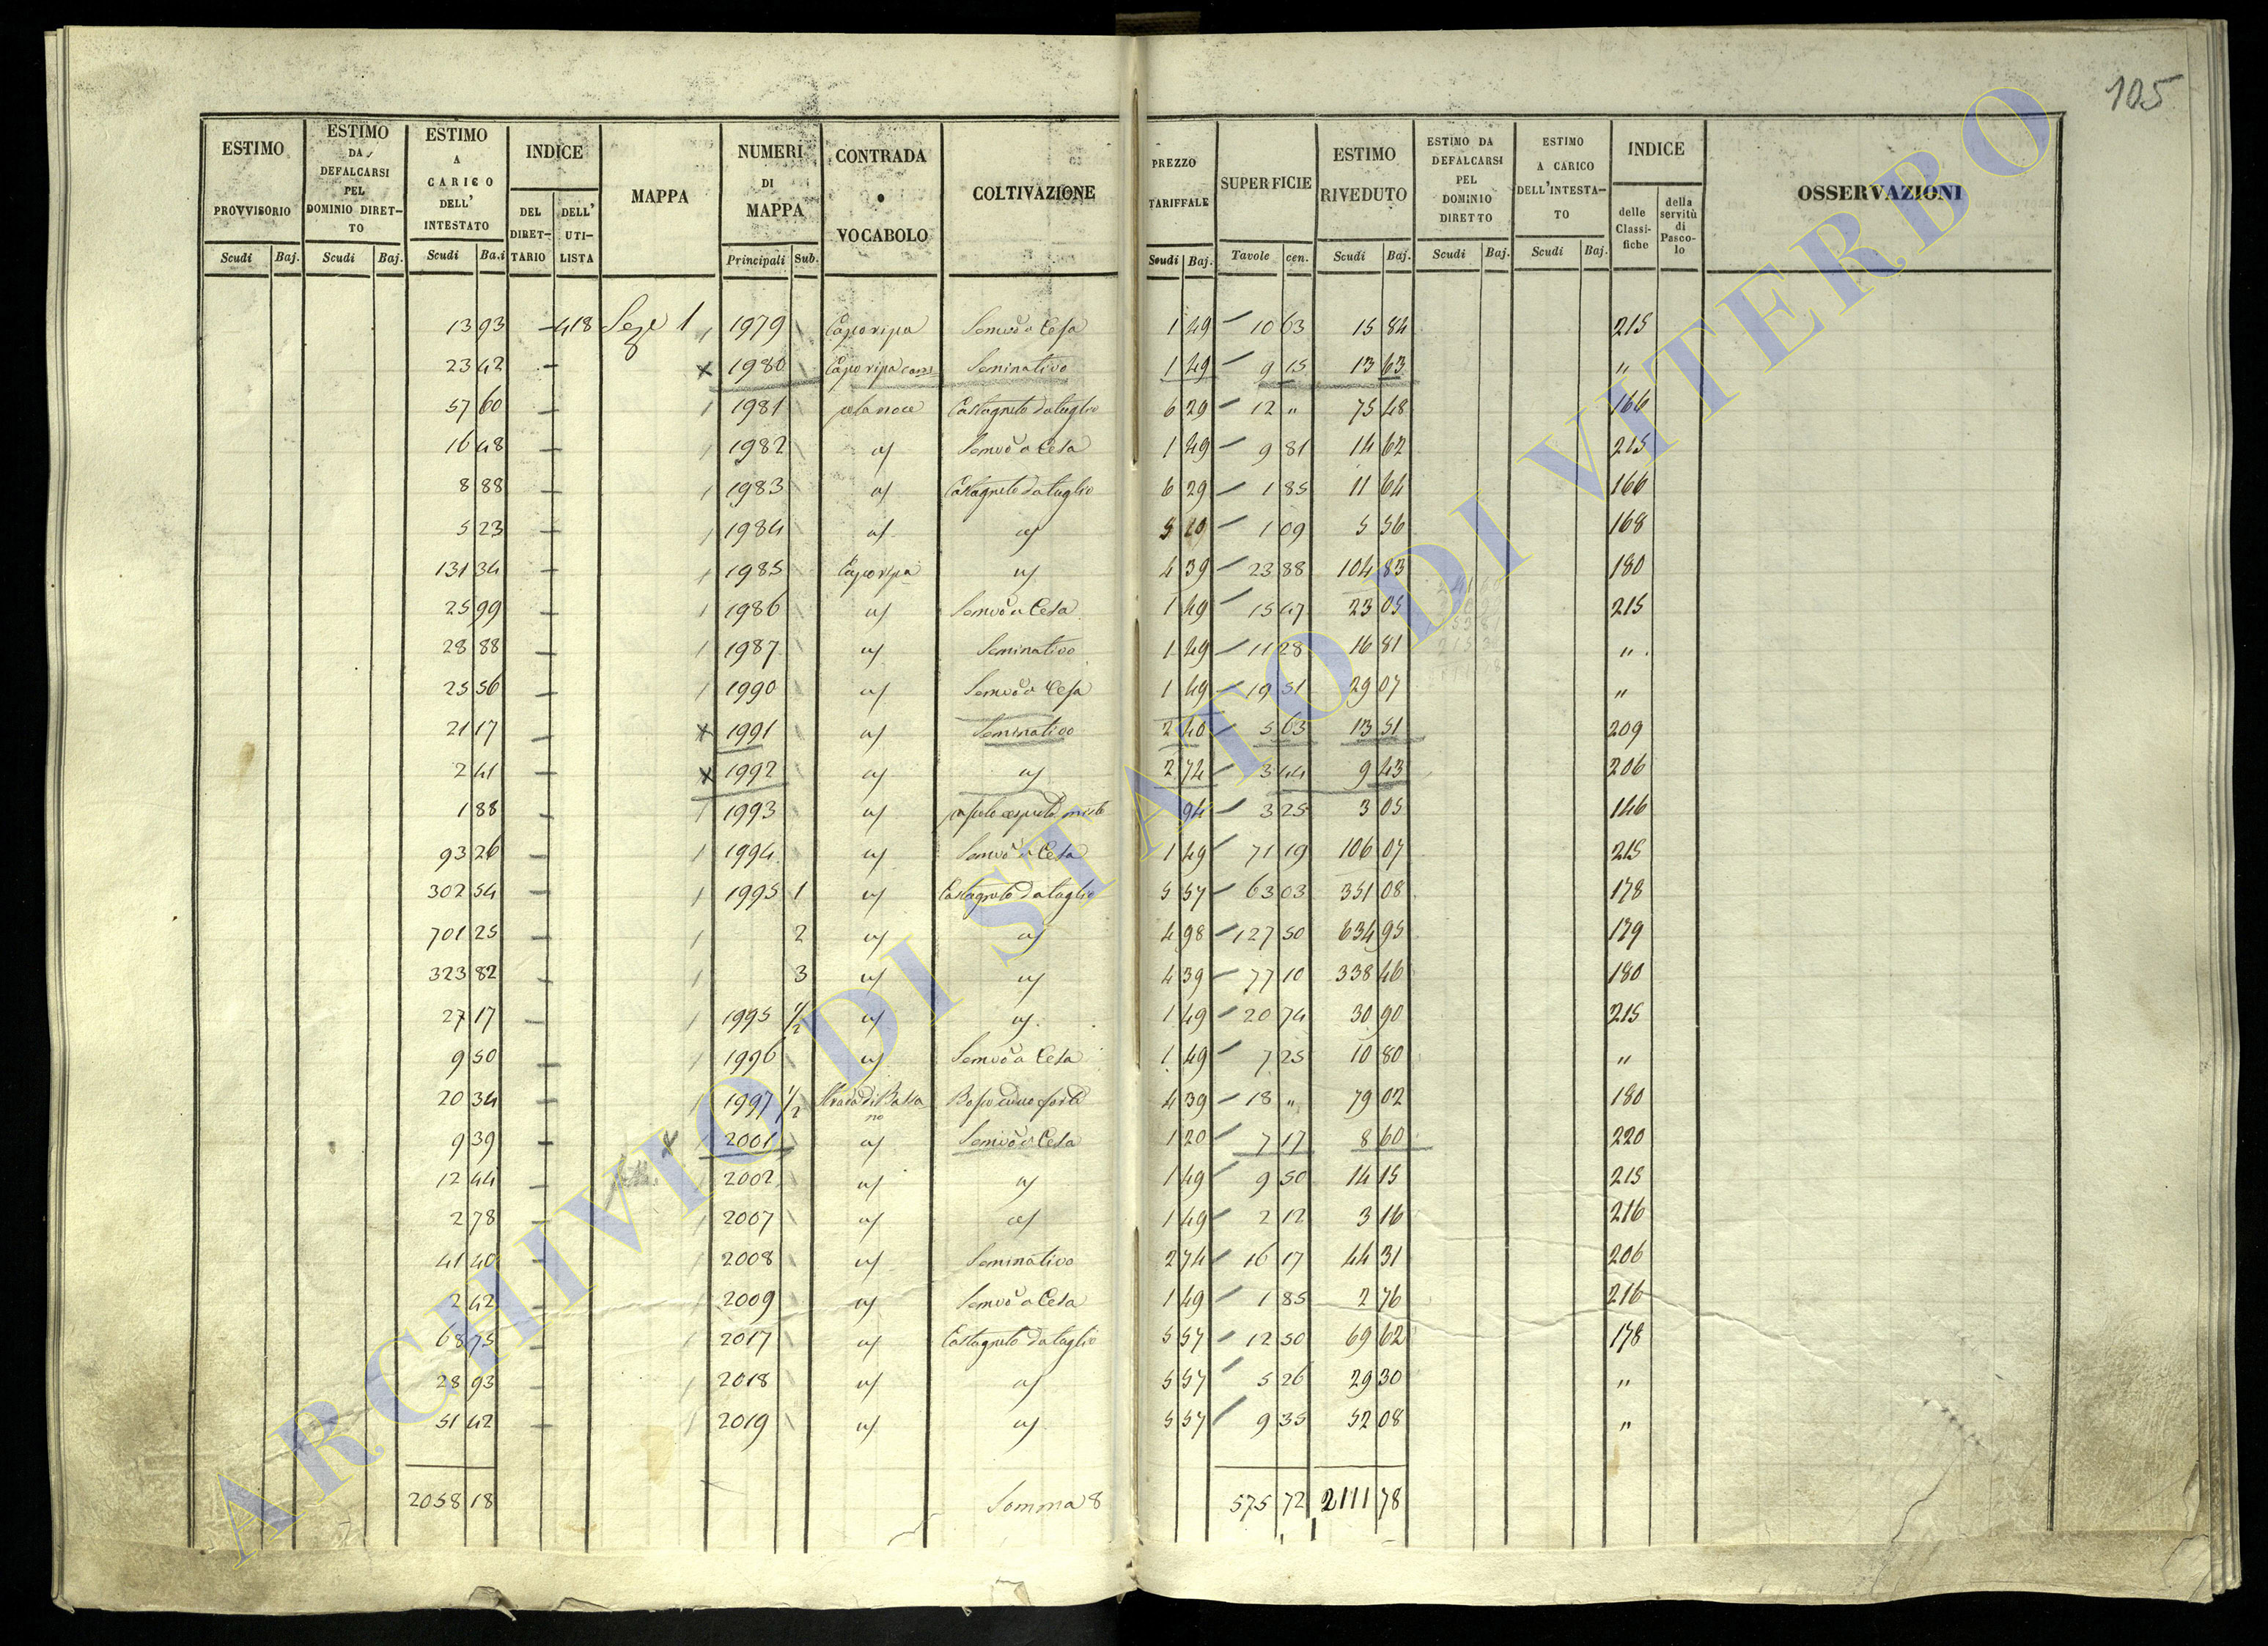 105
ESTIMO PROVVISORIO | ESTIMO DA DEFALCARSI PEL DOMINIO DIRETTO | ESTIMO A CARICO DELL' INTESTATO | INDICE | MAPPA | NUMERI DI MAPPA | CONTRADA o VOCABOLO | COLTIVAZIONE | PREZZO TARIFFALE | SUPERFICIE | ESTIMO RIVEDUTO | ESTIMO DA DEFALCARSI PEL DOMINIO DIRETTO | ESTIMO A CARICO DELL'INTESTATO | INDICE | OSSERVAZIONI
DEL DIRETTARIO | DELL' UTILISTA | delle Classifiche | della servitù di Pascolo
Scudi | Baj. | Scudi | Baj. | Scudi | Baj. | Principali | Sub. | Scudi | Baj. | Tavole | cen. | Scudi | Baj. | Scudi | Baj. | Scudi | Baj.
13 93 — 418 Seze 1 1979 Caporipa Semvo a Cesa 1 49 10 63 15 84 215
23 42 — x 1980 Caporipa Seminativo 1 49 9 15 13 63 "
57 60 — 1981 la noce Castagneto da taglio 6 29 12 " 75 48 166
16 48 — 1982 a/ Semvo a Cesa 1 49 9 81 14 62 215
8 88 — 1983 a/ Castagneto da taglio 6 29 1 85 11 64 166
5 23 — 1984 a/ a/ 5 10 1 09 5 56 168
131 34 — 1985 Caporipa a/ 4 39 23 88 104 83 180
25 99 — 1986 a/ Semvo a Cesa 1 49 15 47 23 05 215
28 88 — 1987 a/ Seminativo 1 49 11 28 16 81 "
25 56 — 1990 a/ Semvo a Cesa 1 49 19 51 29 07 "
21 17 — x 1991 a/ Seminativo 2 40 5 63 13 51 209
2 41 — x 1992 a/ a/ 2 74 3 44 9 43 206
1 88 — 1993 a/ misto 94 3 25 3 05 146
93 26 — 1994 a/ Semvo a Cesa 1 49 71 19 106 07 215
302 54 — 1995 1 a/ Castagneto da taglio 5 57 63 03 351 08 178
701 25 — 2 a/ a/ 4 98 127 50 634 95 179
323 82 — 3 a/ a/ 4 39 77 10 338 46 180
27 17 — 1995 1/2 a/ a/ 1 49 20 74 30 90 215
9 50 — 1996 a/ Semvo a Cesa 1 49 7 25 10 80 "
20 34 — 1997 1/2 Strada di Bassano Bosco ceduo forte 4 39 18 " 79 02 180
9 39 — x 2001 a/ Semvo a Cesa 1 20 7 17 8 60 220
12 44 — 2002 a/ a/ 1 49 9 50 14 15 215
2 78 — 2007 a/ a/ 1 49 2 12 3 16 216
41 40 — 2008 a/ Seminativo 2 74 16 17 44 31 206
2 42 — 2009 a/ Semvo a Cesa 1 49 1 85 2 76 216
68 75 — 2017 a/ Castagneto da taglio 5 57 12 50 69 62 178
28 93 — 2018 a/ a/ 5 57 5 26 29 30 "
51 42 — 2019 a/ a/ 5 57 9 35 52 08 "
2058 18 Somma 8 575 72 2111 78
ARCHIVIO DI STATO DI VITERBO